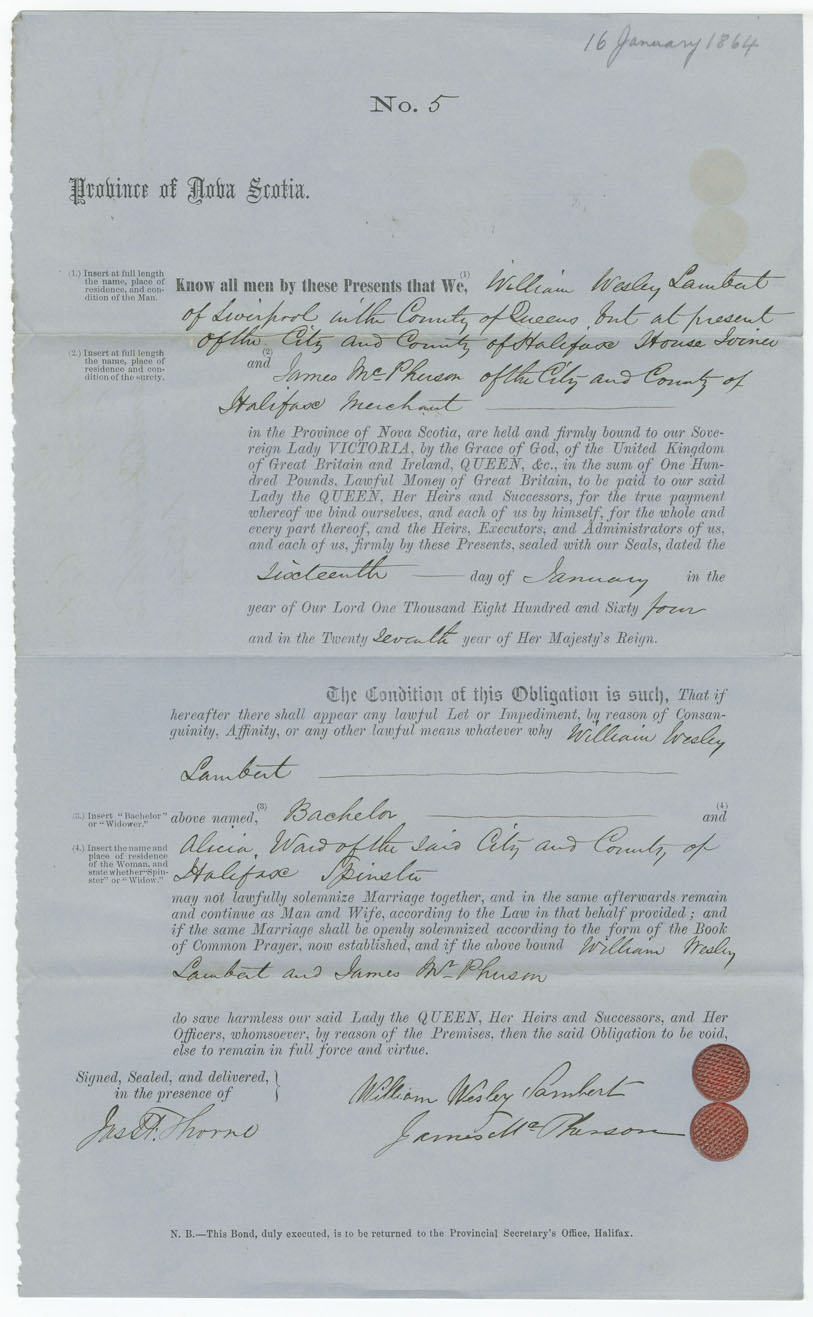 16 January 1864
No. 5
Province of Nova Scotia.
(1.) Insert at full length
the name, place of
residence, and con-
dition of the Man.
Know all men by these Presents that We,(1) William Wesley Lambert
of Liverpool in the County of Queens, but at present
of the City and County of Halifax House Joiner
(2.) Insert at full length
the name, place of
residence and con-
dition of the surety.
and(2) James McPherson of the City and County of
Halifax Merchant
in the Province of Nova Scotia, are held and firmly bound to our Sove-
reign Lady VICTORIA, by the Grace of God, of the United Kingdom
of Great Britain and Ireland, QUEEN, &c., in the sum of One Hun-
dred Pounds, Lawful Money of Great Britain, to be paid to our said
Lady the QUEEN, Her Heirs and Successors, for the true payment
whereof we bind ourselves, and each of us by himself, for the whole and
every part thereof, and the Heirs, Executors, and Administrators of us,
and each of us, firmly by these Presents, sealed with our Seals, dated the
Sixteenth — day of January in the
year of Our Lord One Thousand Eight Hundred and Sixty four
and in the Twenty Seventh year of Her Majesty's Reign.
The Condition of this Obligation is such, That if
hereafter there shall appear any lawful Let or Impediment, by reason of Consan-
guinity, Affinity, or any other lawful means whatever why William Wesley
Lambert
(3.) Insert "Bachelor"
or "Widower."
above named,(3) Bachelor (4) and
(4.) Insert the name and
place of residence
of the Woman, and
state whether "Spin-
ster" or "Widow."
Alicia Ward of the said City and County of
Halifax Spinster
may not lawfully solemnize Marriage together, and in the same afterwards remain
and continue as Man and Wife, according to the Law in that behalf provided; and
if the same Marriage shall be openly solemnized according to the form of the Book
of Common Prayer, now established, and if the above bound William Wesley
Lambert and James McPherson
do save harmless our said Lady the QUEEN, Her Heirs and Successors, and Her
Officers, whomsoever, by reason of the Premises, then the said Obligation to be void,
else to remain in full force and virtue.
Signed, Sealed, and delivered,
in the presence of
William Wesley Lambert
Jas F. Thorne
James McPherson
N. B.—This Bond, duly executed, is to be returned to the Provincial Secretary's Office, Halifax.